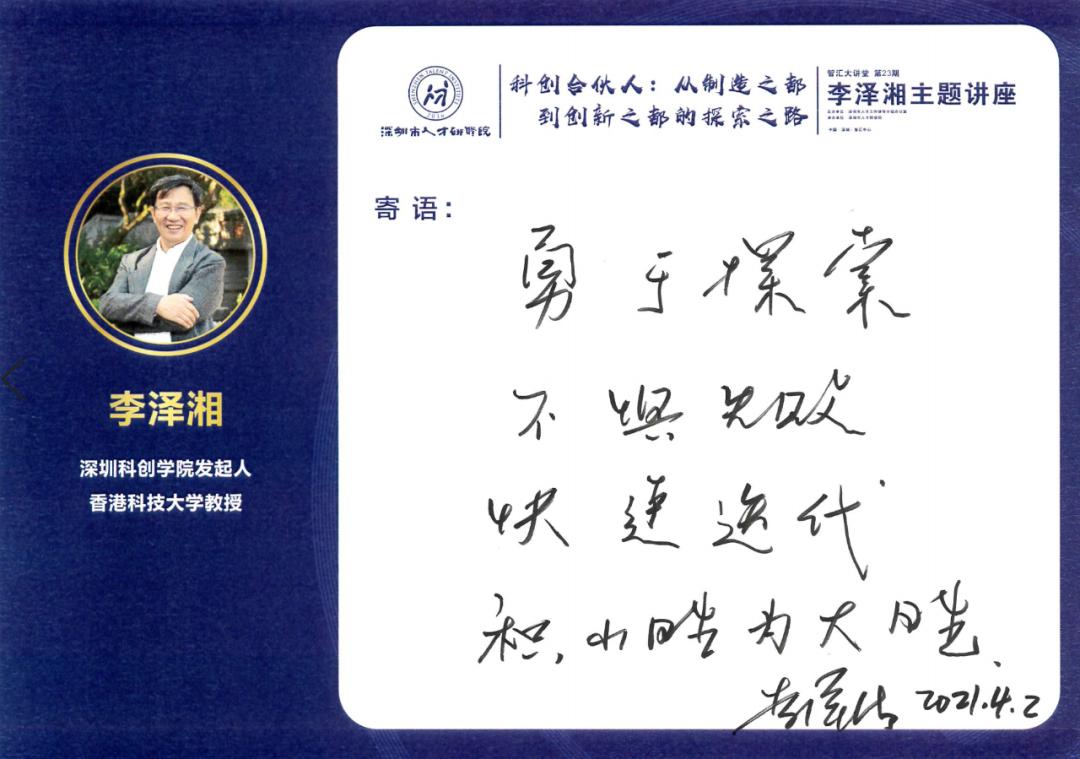 李泽湘
深圳科创学院发起人
香港科技大学教授
SHENZHEN TALENT INSTITUTE
2016
深圳市人才研修院
科创合伙人：从制造之都
到创新之都的探索之路
智汇大讲堂 第23期
李泽湘主题讲座
中国·深圳·智汇中心
寄语：
勇于探索
不惧失败
快速迭代
积小胜为大胜
李泽湘 2021.4.2